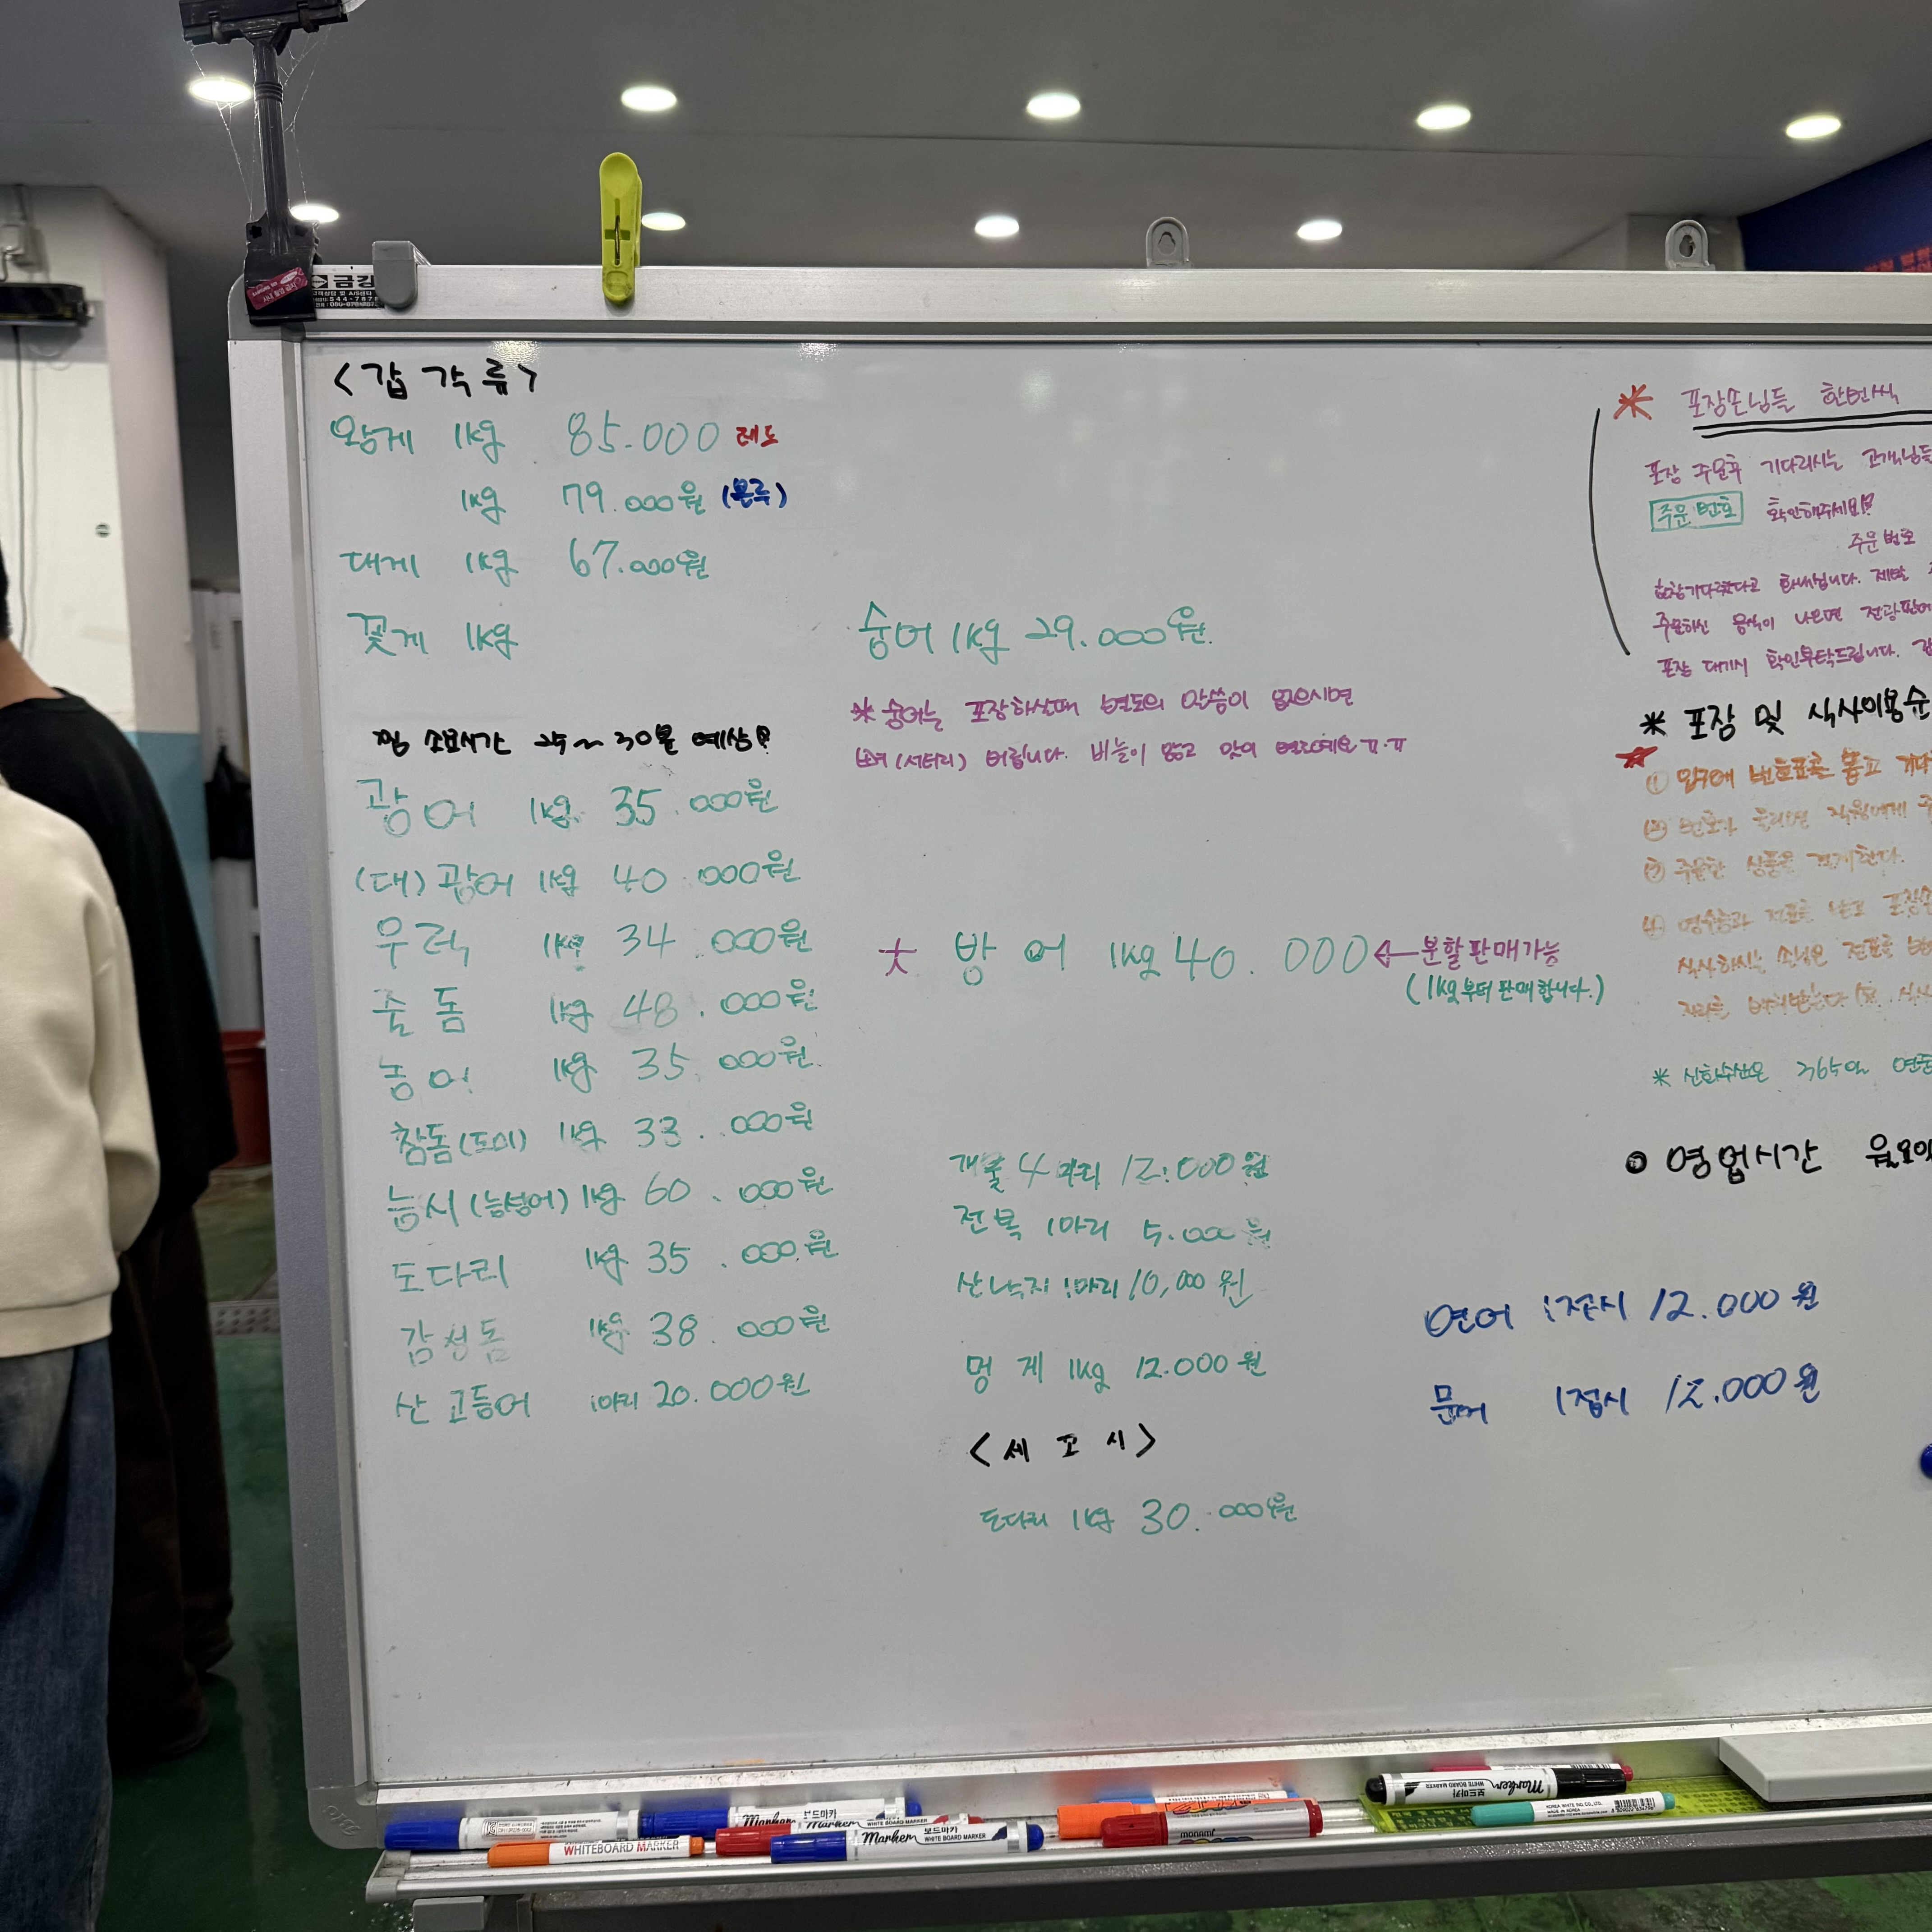 <갑 각 류>
왕게 1kg 85.000 레드
1kg 79.000원 (블루)
대게 1kg 67.000원
꽃게 1kg
찜 소요시간 25~30분 예상!!
광어 1kg 35.000원
(대)광어 1kg 40.000원
우럭 1kg 34.000원
줄돔 1kg 48.000원
농어 1kg 35.000원
참돔(도미) 1kg 33.000원
능시(능성어) 1kg 60.000원
도다리 1kg 35.000원
감성돔 1kg 38.000원
산 고등어 1마리 20.000원
숭어 1kg 29.000원
* 숭어는 포장하실때 별도의 말씀이 없으시면
(서더리) 버립니다. 비늘이 많고 맛이 ㅠ.ㅠ
大 방어 1kg 40.000 ← 분할판매가능
(1kg부터 판매합니다.)
개불 4마리 12.000원
전복 1마리 5.000원
산낙지 1마리 10,000원
멍게 1kg 12.000원
<세 꼬 시>
도다리 1kg 30.000원
연어 1접시 12.000원
문어 1접시 12.000원
* 포장손님들 한번씩
포장 주문후 기다리시는 고객님들
주문번호 확인해주세요!!
주문번호
화내십니다. 제발
주문하신 음식이 나오면 전광판에
포장 대기시 확인부탁드립니다.
* 포장 및 식사이용순
① 입구에 번호표를 뽑고
② 번호가 불리면 직원에게
③ 주문한 상품을 결제한다.
④ 영수증과 전표를 포장손
식사하시는 손님은 전표를
자리를 배정받는다
* 365일 연중
● 영업시간 월요일
금강
고객상담 및 A/S센터
WHITEBOARD MARKER
Marker
보드마카
Marker
보드마카
WHITE BOARD MARKER
monami
Marker
보드마카
WHITE BOARD MARKER
KOREA WHITE INC.CO.,LTD.
MADE IN KOREA